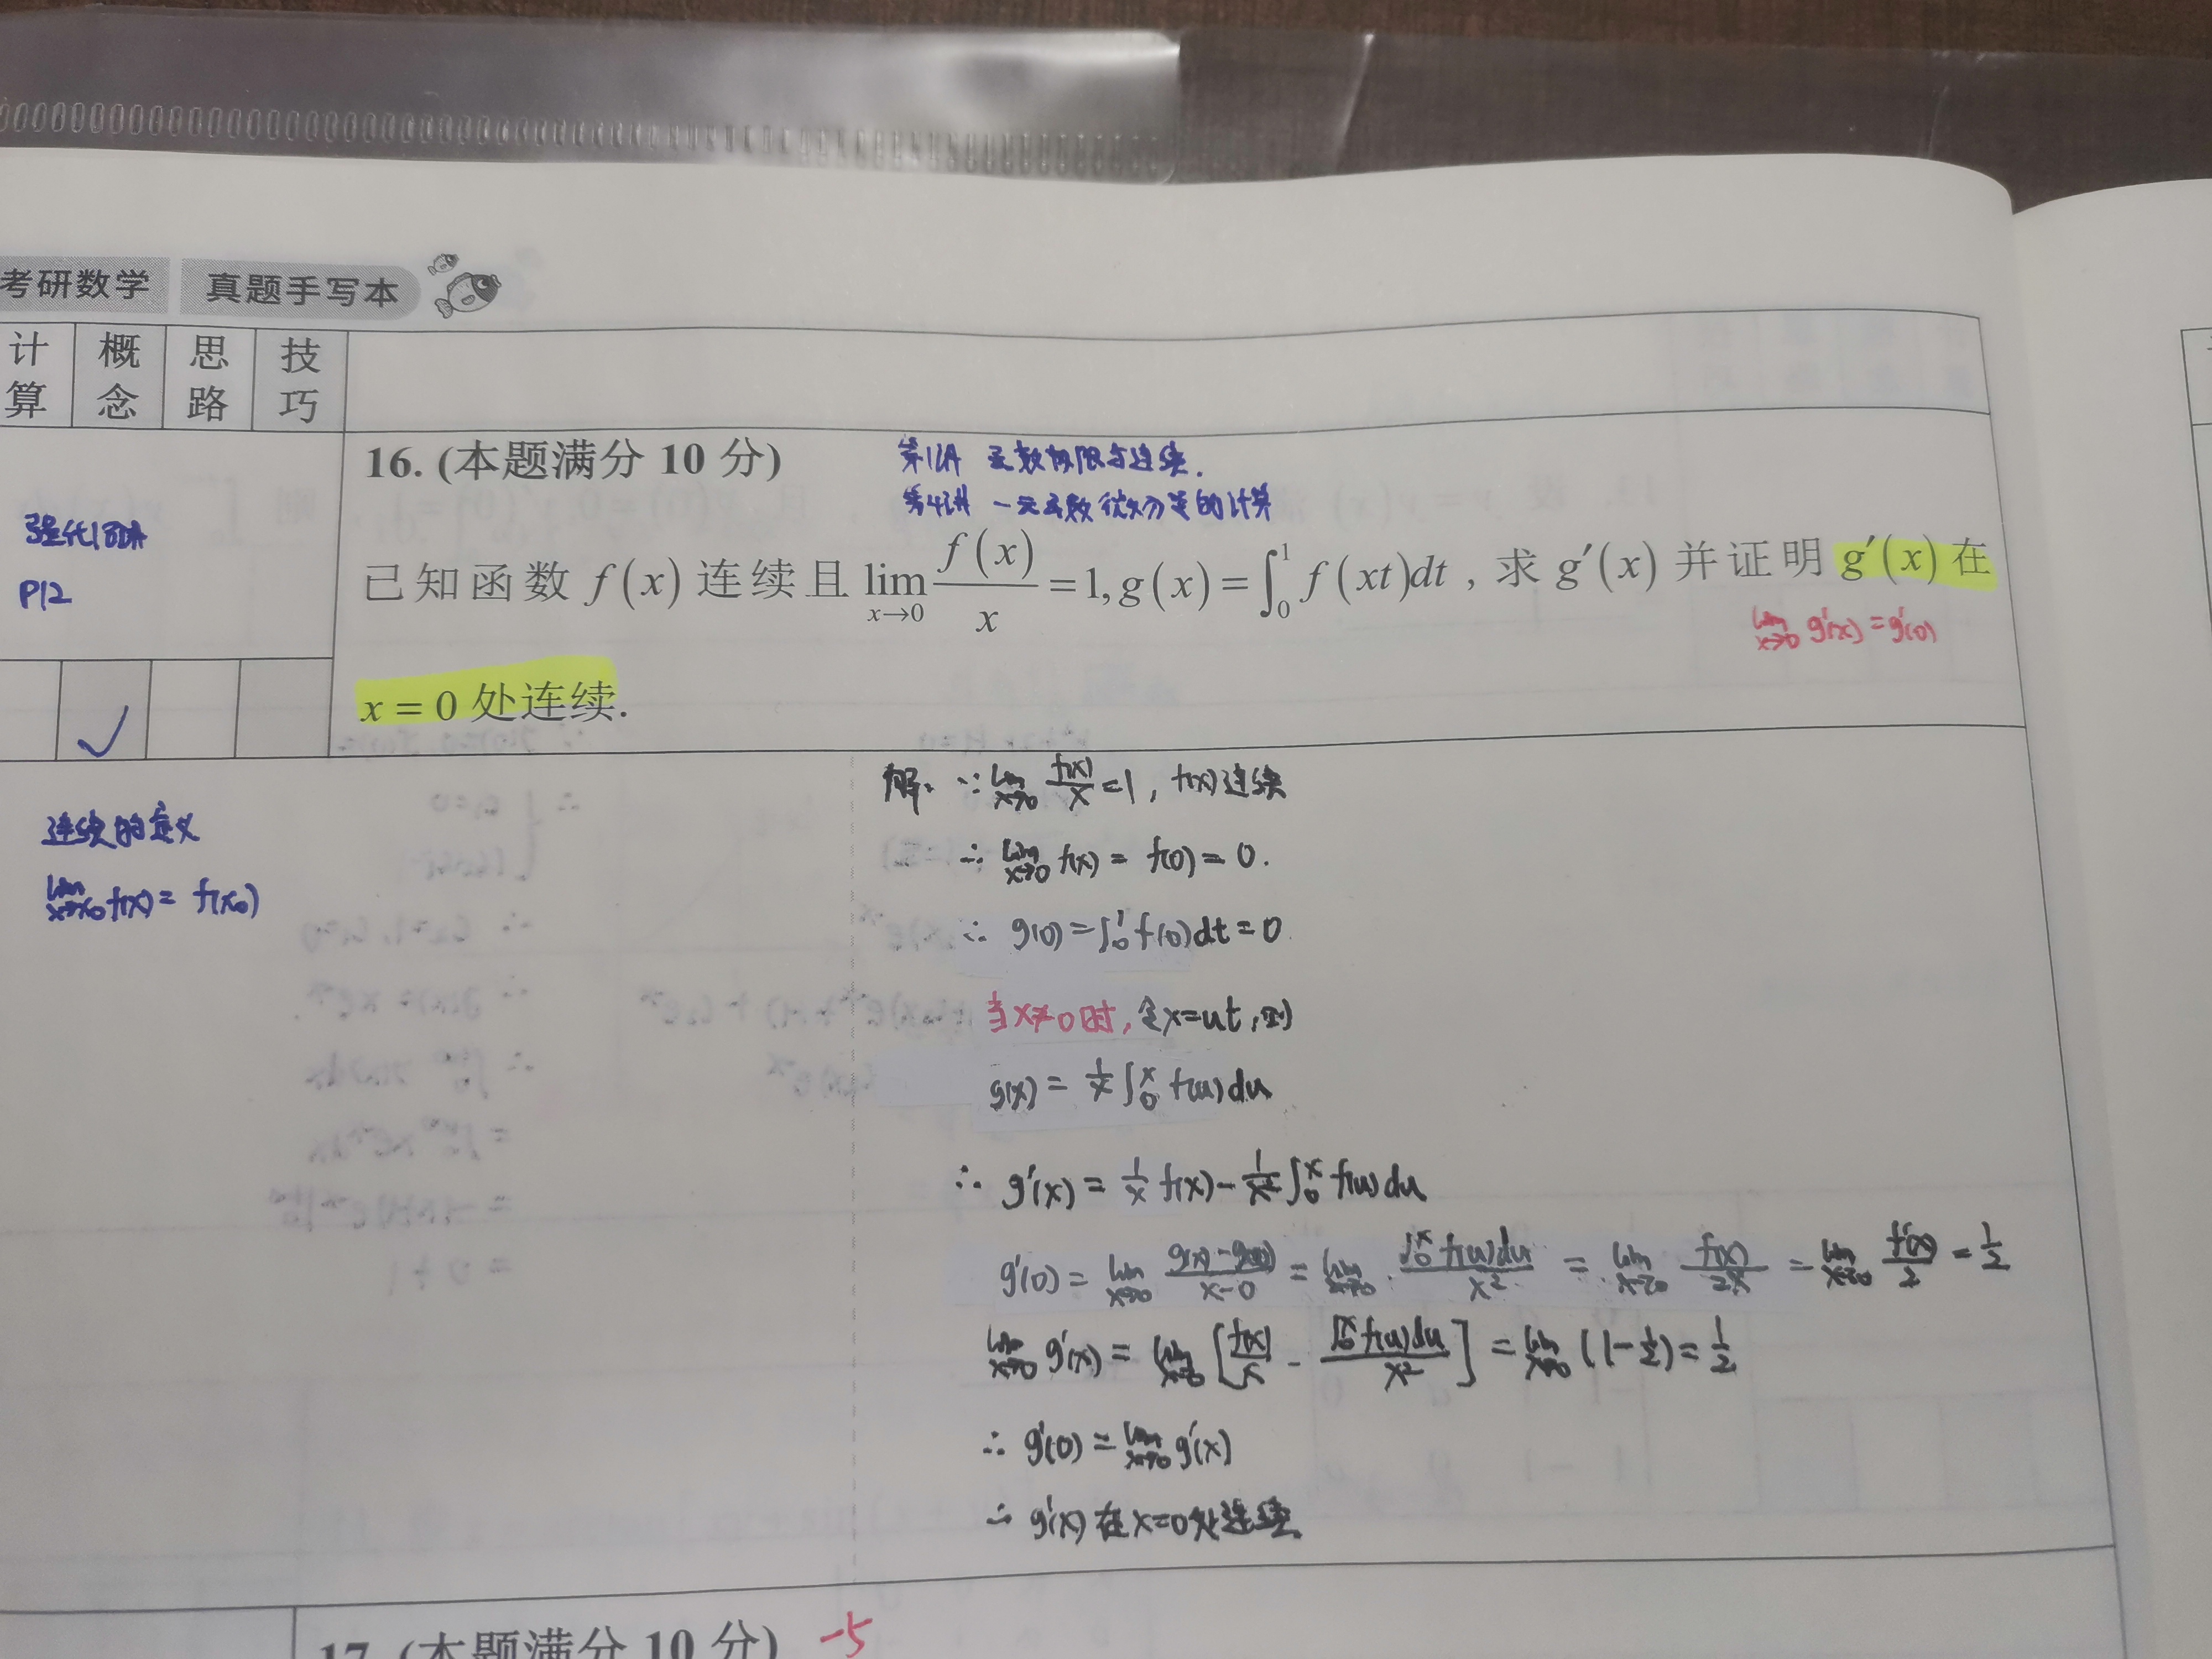 考研数学 真题手写本
计算 概念 思路 技巧
16. (本题满分 10 分)
第1讲 函数极限与连续.
第4讲 一元函数微分学的计算
强化1阶
P12
已知函数 f(x) 连续且 lim_{x→0} f(x)/x = 1, g(x) = ∫_0^1 f(xt)dt , 求 g′(x) 并证明 g′(x) 在
lim_{x→0} g′(x) = g′(0)
x = 0 处连续.
✓
连续的定义
lim_{x→x0} f(x) = f(x0)
解: ∵ lim_{x→0} f(x)/x = 1, f(x)连续
∴ lim_{x→0} f(x) = f(0) = 0.
∴ g(0) = ∫_0^1 f(0)dt = 0
当x≠0时, 令x=ut, 则
g(x) = 1/x ∫_0^x f(u)du
∴ g′(x) = 1/x f(x) - 1/x² ∫_0^x f(u)du
g′(0) = lim_{x→0} (g(x)-g(0))/(x-0) = lim_{x→0} ∫_0^x f(u)du / x² = lim_{x→0} f(x)/2x = lim_{x→0} f′(x)/2 = 1/2
lim_{x→0} g′(x) = lim_{x→0} [f(x)/x - ∫_0^x f(u)du / x²] = lim_{x→0} (1-1/2) = 1/2
∴ g′(0) = lim_{x→0} g′(x)
∴ g′(x) 在 x=0 处连续.
17. (本题满分 10 分) -5